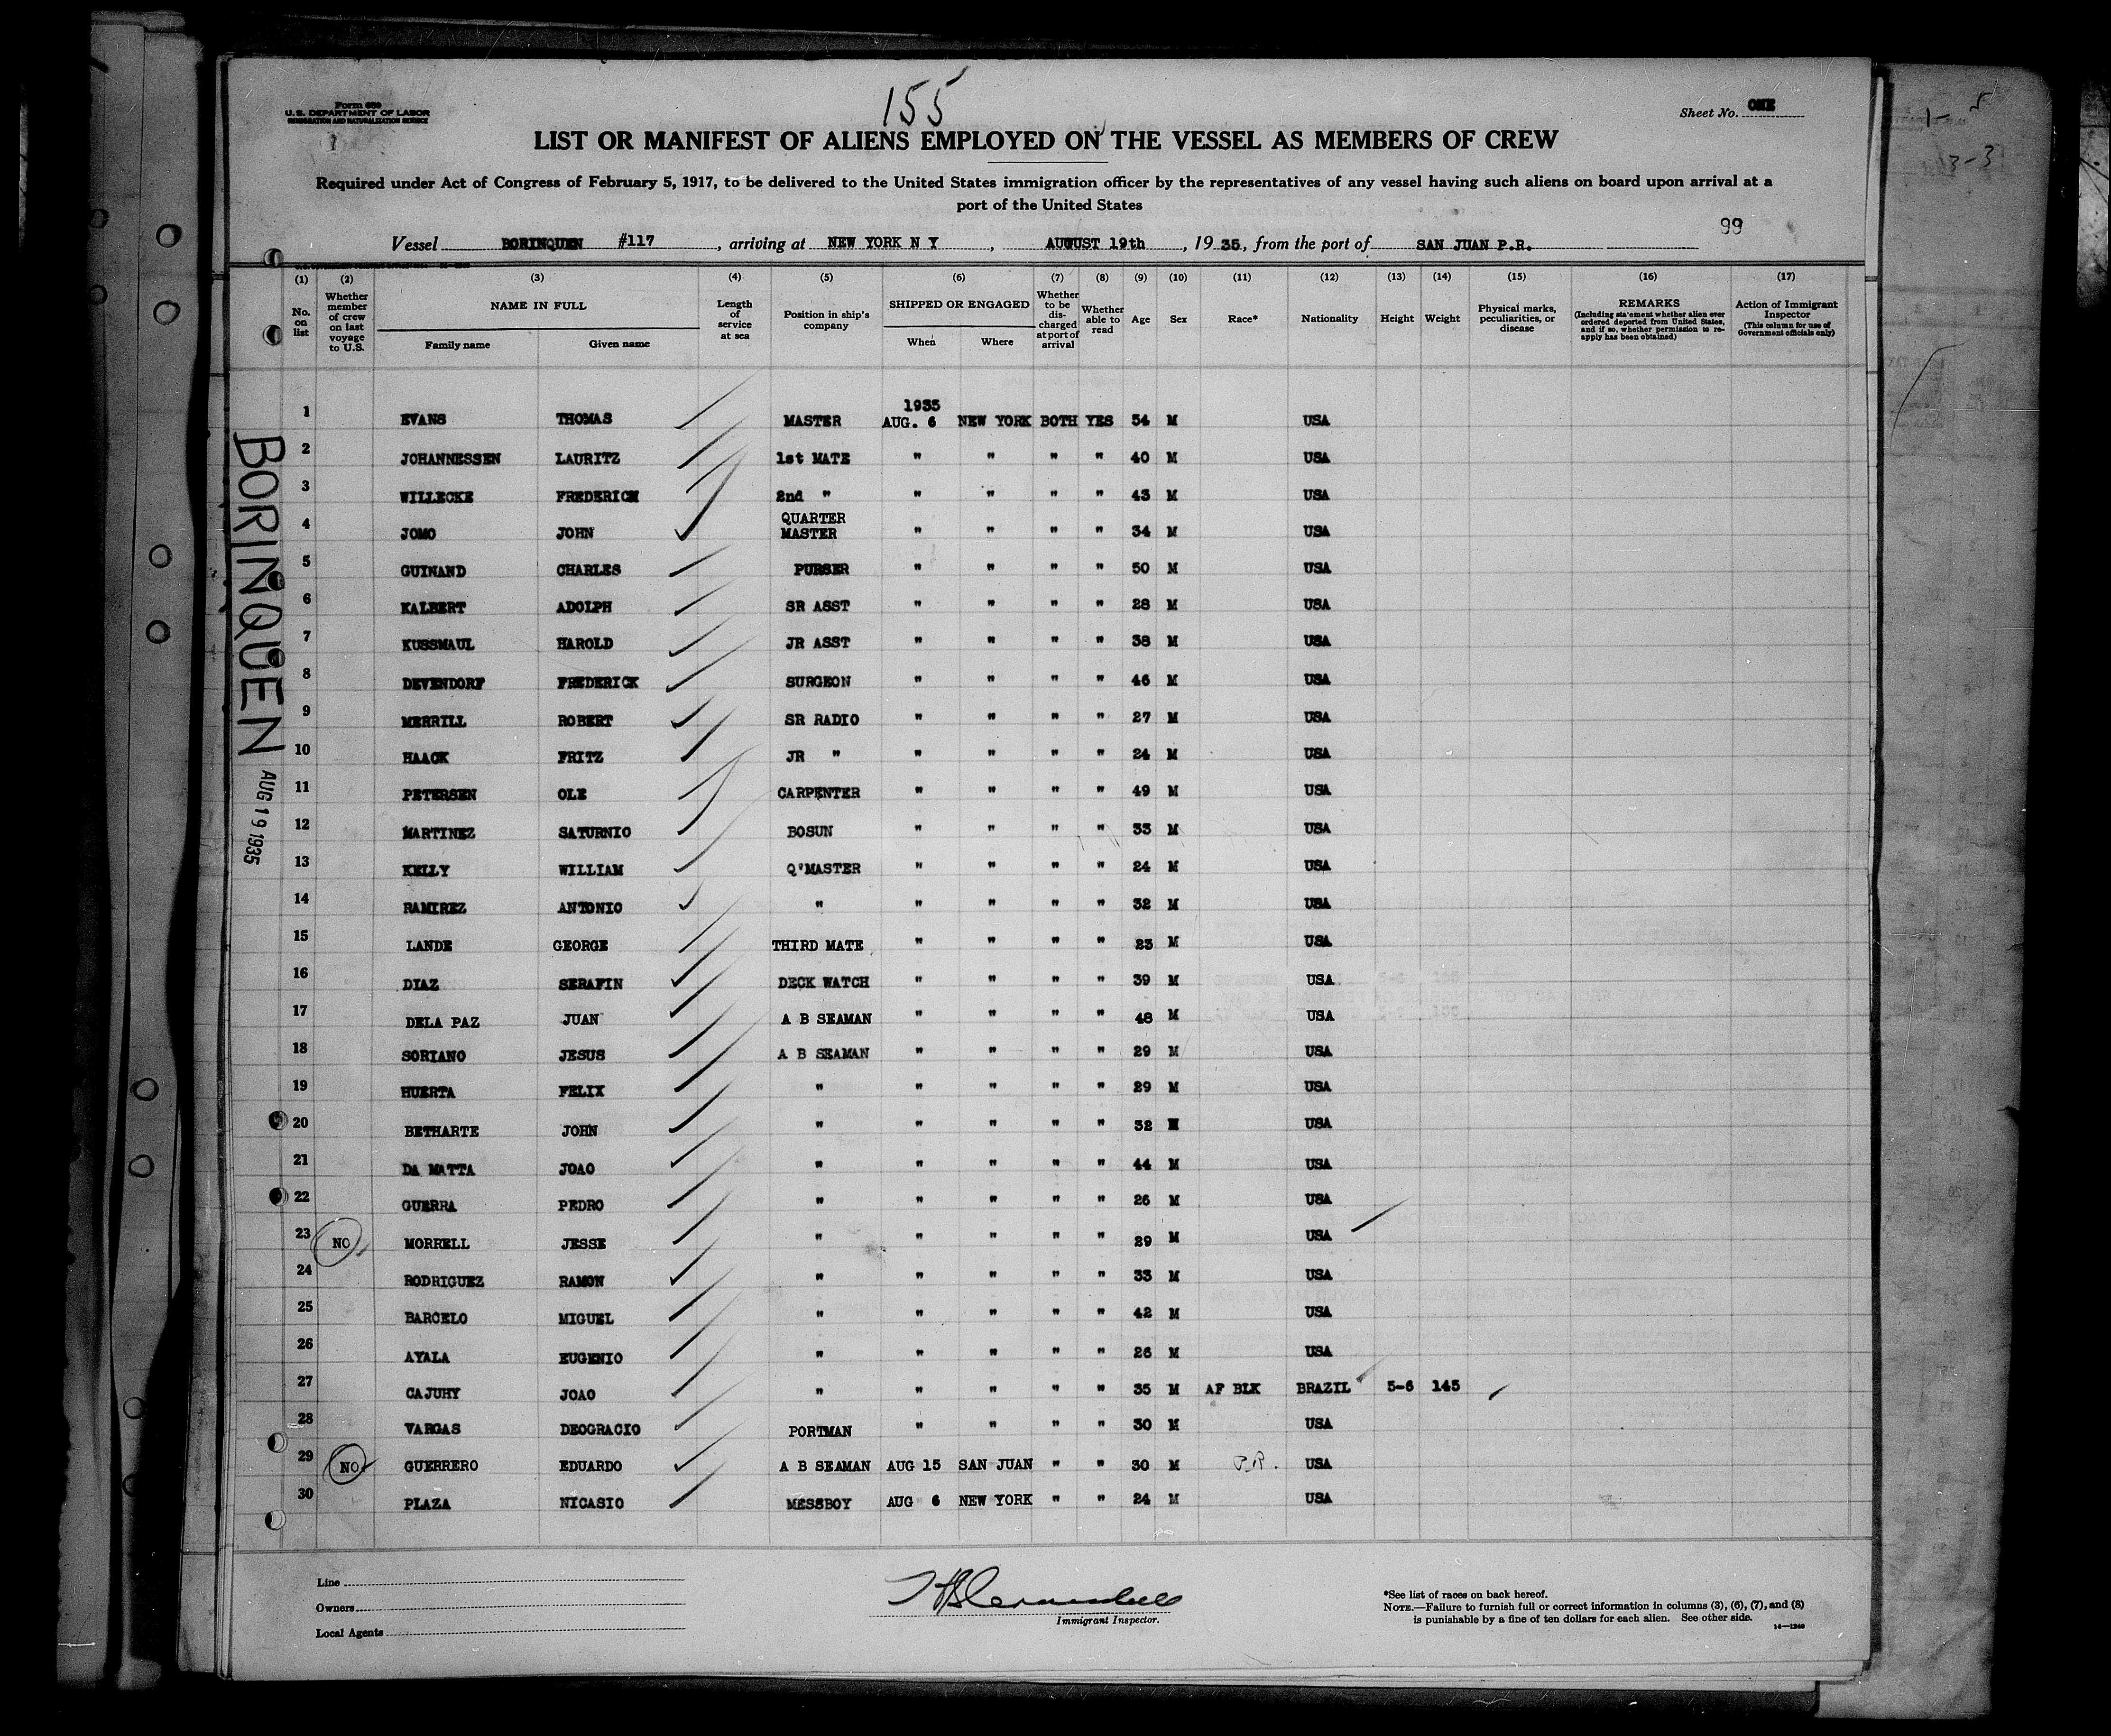 155
Form 680
U.S. DEPARTMENT OF LABOR
IMMIGRATION AND NATURALIZATION SERVICE
Sheet No. ONE
LIST OR MANIFEST OF ALIENS EMPLOYED ON THE VESSEL AS MEMBERS OF CREW
Required under Act of Congress of February 5, 1917, to be delivered to the United States immigration officer by the representatives of any vessel having such aliens on board upon arrival at a
port of the United States
99
Vessel BORINQUEN #117, arriving at NEW YORK N Y, AUGUST 19th, 1935, from the port of SAN JUAN P.R.
(1) (2) (3) (4) (5) (6) (7) (8) (9) (10) (11) (12) (13) (14) (15) (16) (17)
No. on list
Whether member of crew on last voyage to U.S.
NAME IN FULL
Family name Given name
Length of service at sea
Position in ship's company
SHIPPED OR ENGAGED
When Where
Whether to be discharged at port of arrival
Whether able to read
Age Sex Race* Nationality Height Weight
Physical marks, peculiarities, or disease
REMARKS
(Including statement whether alien ever ordered deported from United States, and if so, whether permission to reapply has been obtained)
Action of Immigrant Inspector
(This column for use of Government officials only)
1935
1 EVANS THOMAS MASTER AUG. 6 NEW YORK BOTH YES 54 M USA
2 JOHANNESSEN LAURITZ 1st MATE " " " " 40 M USA
3 WILLECKE FREDERICK 2nd " " " " " 43 M USA
4 JOMO JOHN QUARTER MASTER " " " " 34 M USA
5 GUINAND CHARLES PURSER " " " " 50 M USA
6 KALBERT ADOLPH SR ASST " " " " 28 M USA
7 KUSSMAUL HAROLD JR ASST " " " " 38 M USA
8 DEVENDORF FREDERICK SURGEON " " " " 46 M USA
9 MERRILL ROBERT SR RADIO " " " " 27 M USA
10 HAACK FRITZ JR " " " " " 24 M USA
11 PETERSEN OLE CARPENTER " " " " 49 M USA
12 MARTINEZ SATURNIO BOSUN " " " " 33 M USA
13 KELLY WILLIAM Q'MASTER " " " " 24 M USA
14 RAMIREZ ANTONIO " " " " " 32 M USA
15 LANDE GEORGE THIRD MATE " " " " 23 M USA
16 DIAZ SERAFIN DECK WATCH " " " " 39 M USA
17 DELA PAZ JUAN A B SEAMAN " " " " 48 M USA
18 SORIANO JESUS A B SEAMAN " " " " 29 M USA
19 HUERTA FELIX " " " " " 29 M USA
20 BETHARTE JOHN " " " " " 32 M USA
21 DA MATTA JOAO " " " " " 44 M USA
22 GUERRA PEDRO " " " " " 26 M USA
23 NO MORRELL JESSE " " " " " 29 M USA
24 RODRIGUEZ RAMON " " " " " 33 M USA
25 BARCELO MIGUEL " " " " " 42 M USA
26 AYALA EUGENIO " " " " " 26 M USA
27 CAJUHY JOAO " " " " " 35 M AF BLK BRAZIL 5-6 145
28 VARGAS DEOGRACIO PORTMAN " " " " 30 M USA
29 NO GUERRERO EDUARDO A B SEAMAN AUG 15 SAN JUAN " " 30 M P.R. USA
30 PLAZA NICASIO MESSBOY AUG 6 NEW YORK " " 24 M USA
BORINQUEN
AUG 19 1935
Line
Owners
Local Agents
Immigrant Inspector.
*See list of races on back hereof.
NOTE.—Failure to furnish full or correct information in columns (3), (6), (7), and (8)
is punishable by a fine of ten dollars for each alien. See other side.
14—1240
3-3